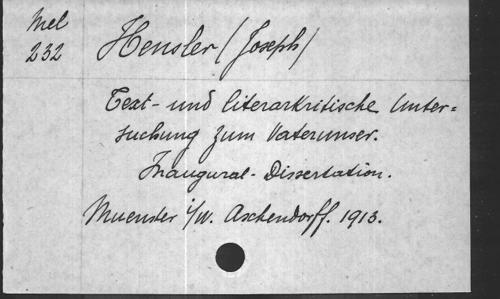 Mel
232
Hensler / Joseph /
Text- und literarkritische Unter-
suchung zum Vaterunser.
Inaugural-Dissertation.
Muenster i/W. Aschendorff. 1913.